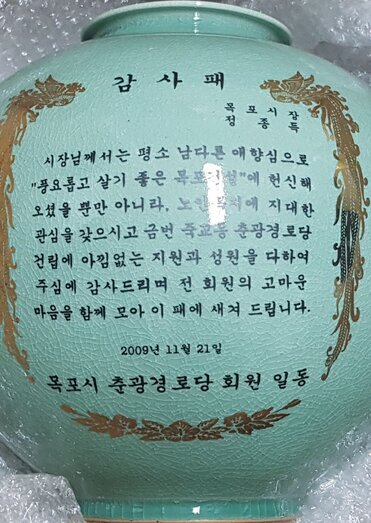 감 사 패
목 포 시 장
정 종 득
시장님께서는 평소 남다른 애향심으로
"풍요롭고 살기 좋은 목포건설"에 헌신해
오셨을 뿐만 아니라, 노인복지에 지대한
관심을 갖으시고 금번 죽교동 춘광경로당
건립에 아낌없는 지원과 성원을 다하여
주심에 감사드리며 전 회원의 고마운
마음을 함께 모아 이 패에 새겨 드립니다.
2009년 11월 21일
목포시 춘광경로당 회원 일동